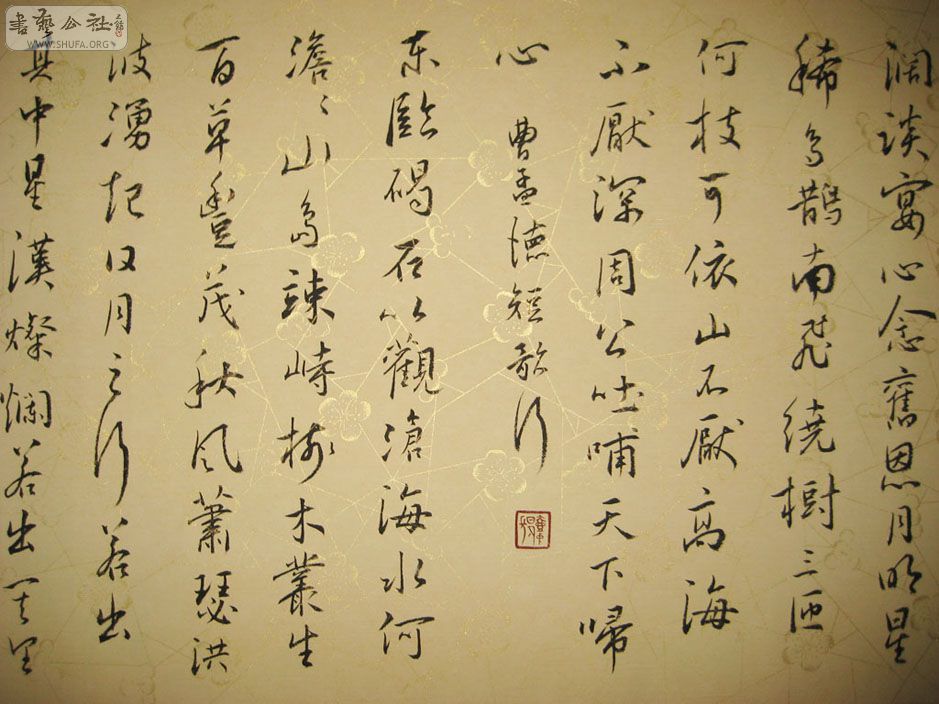 阔談宴心念舊恩月明星
稀烏鵲南飛繞樹三匝
何枝可依山不厭高海
不厭深周公吐哺天下歸
心 曹孟德短歌行
東臨碣石以觀滄海水何
澹〻山島竦峙樹木叢生
百草豐茂秋風蕭瑟洪
波湧起日月之行若出
其中星漢燦爛若出其里
書藝公社
WWW.SHUFA.ORG